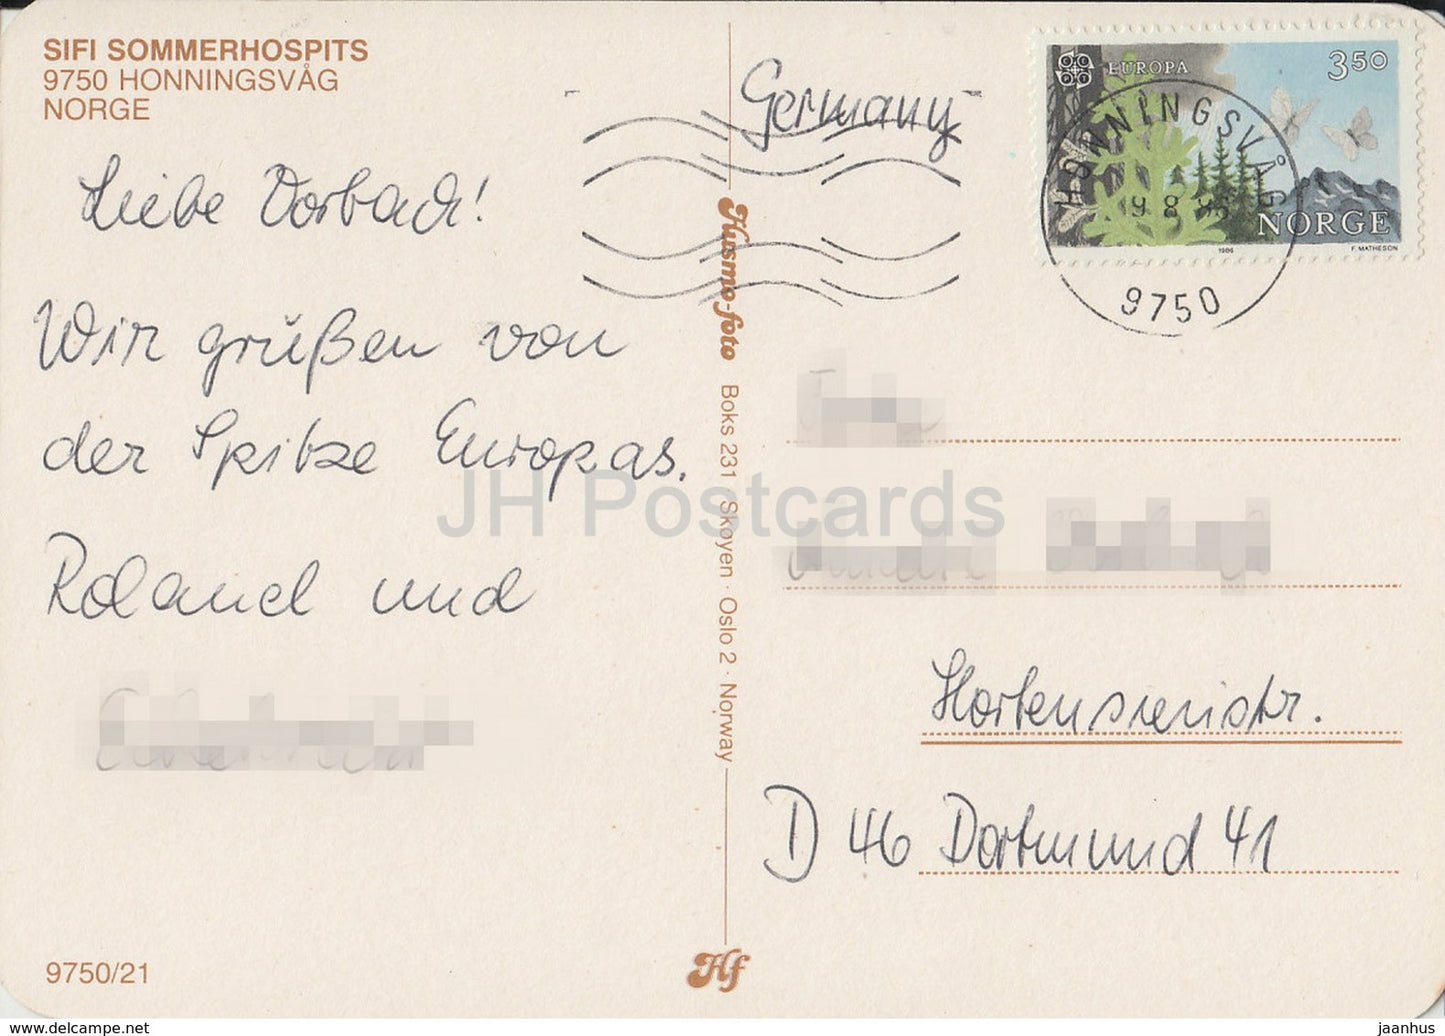 SIFI SOMMERHOSPITS
9750 HONNINGSVÅG
NORGE
Liebe Dorbach!
Wir grüßen von
der Spitze Europas.
Roland und
9750/21
Husmo-foto Boks 231 Skøyen · Oslo 2 · Norway
Hf
Germany
EUROPA
3 50
NORGE
1986
F. MATHESON
HONNINGSVÅG
9750
Hortensienstr.
D 46 Dortmund 41
JH Postcards
www.delcampe.net
jaanhus